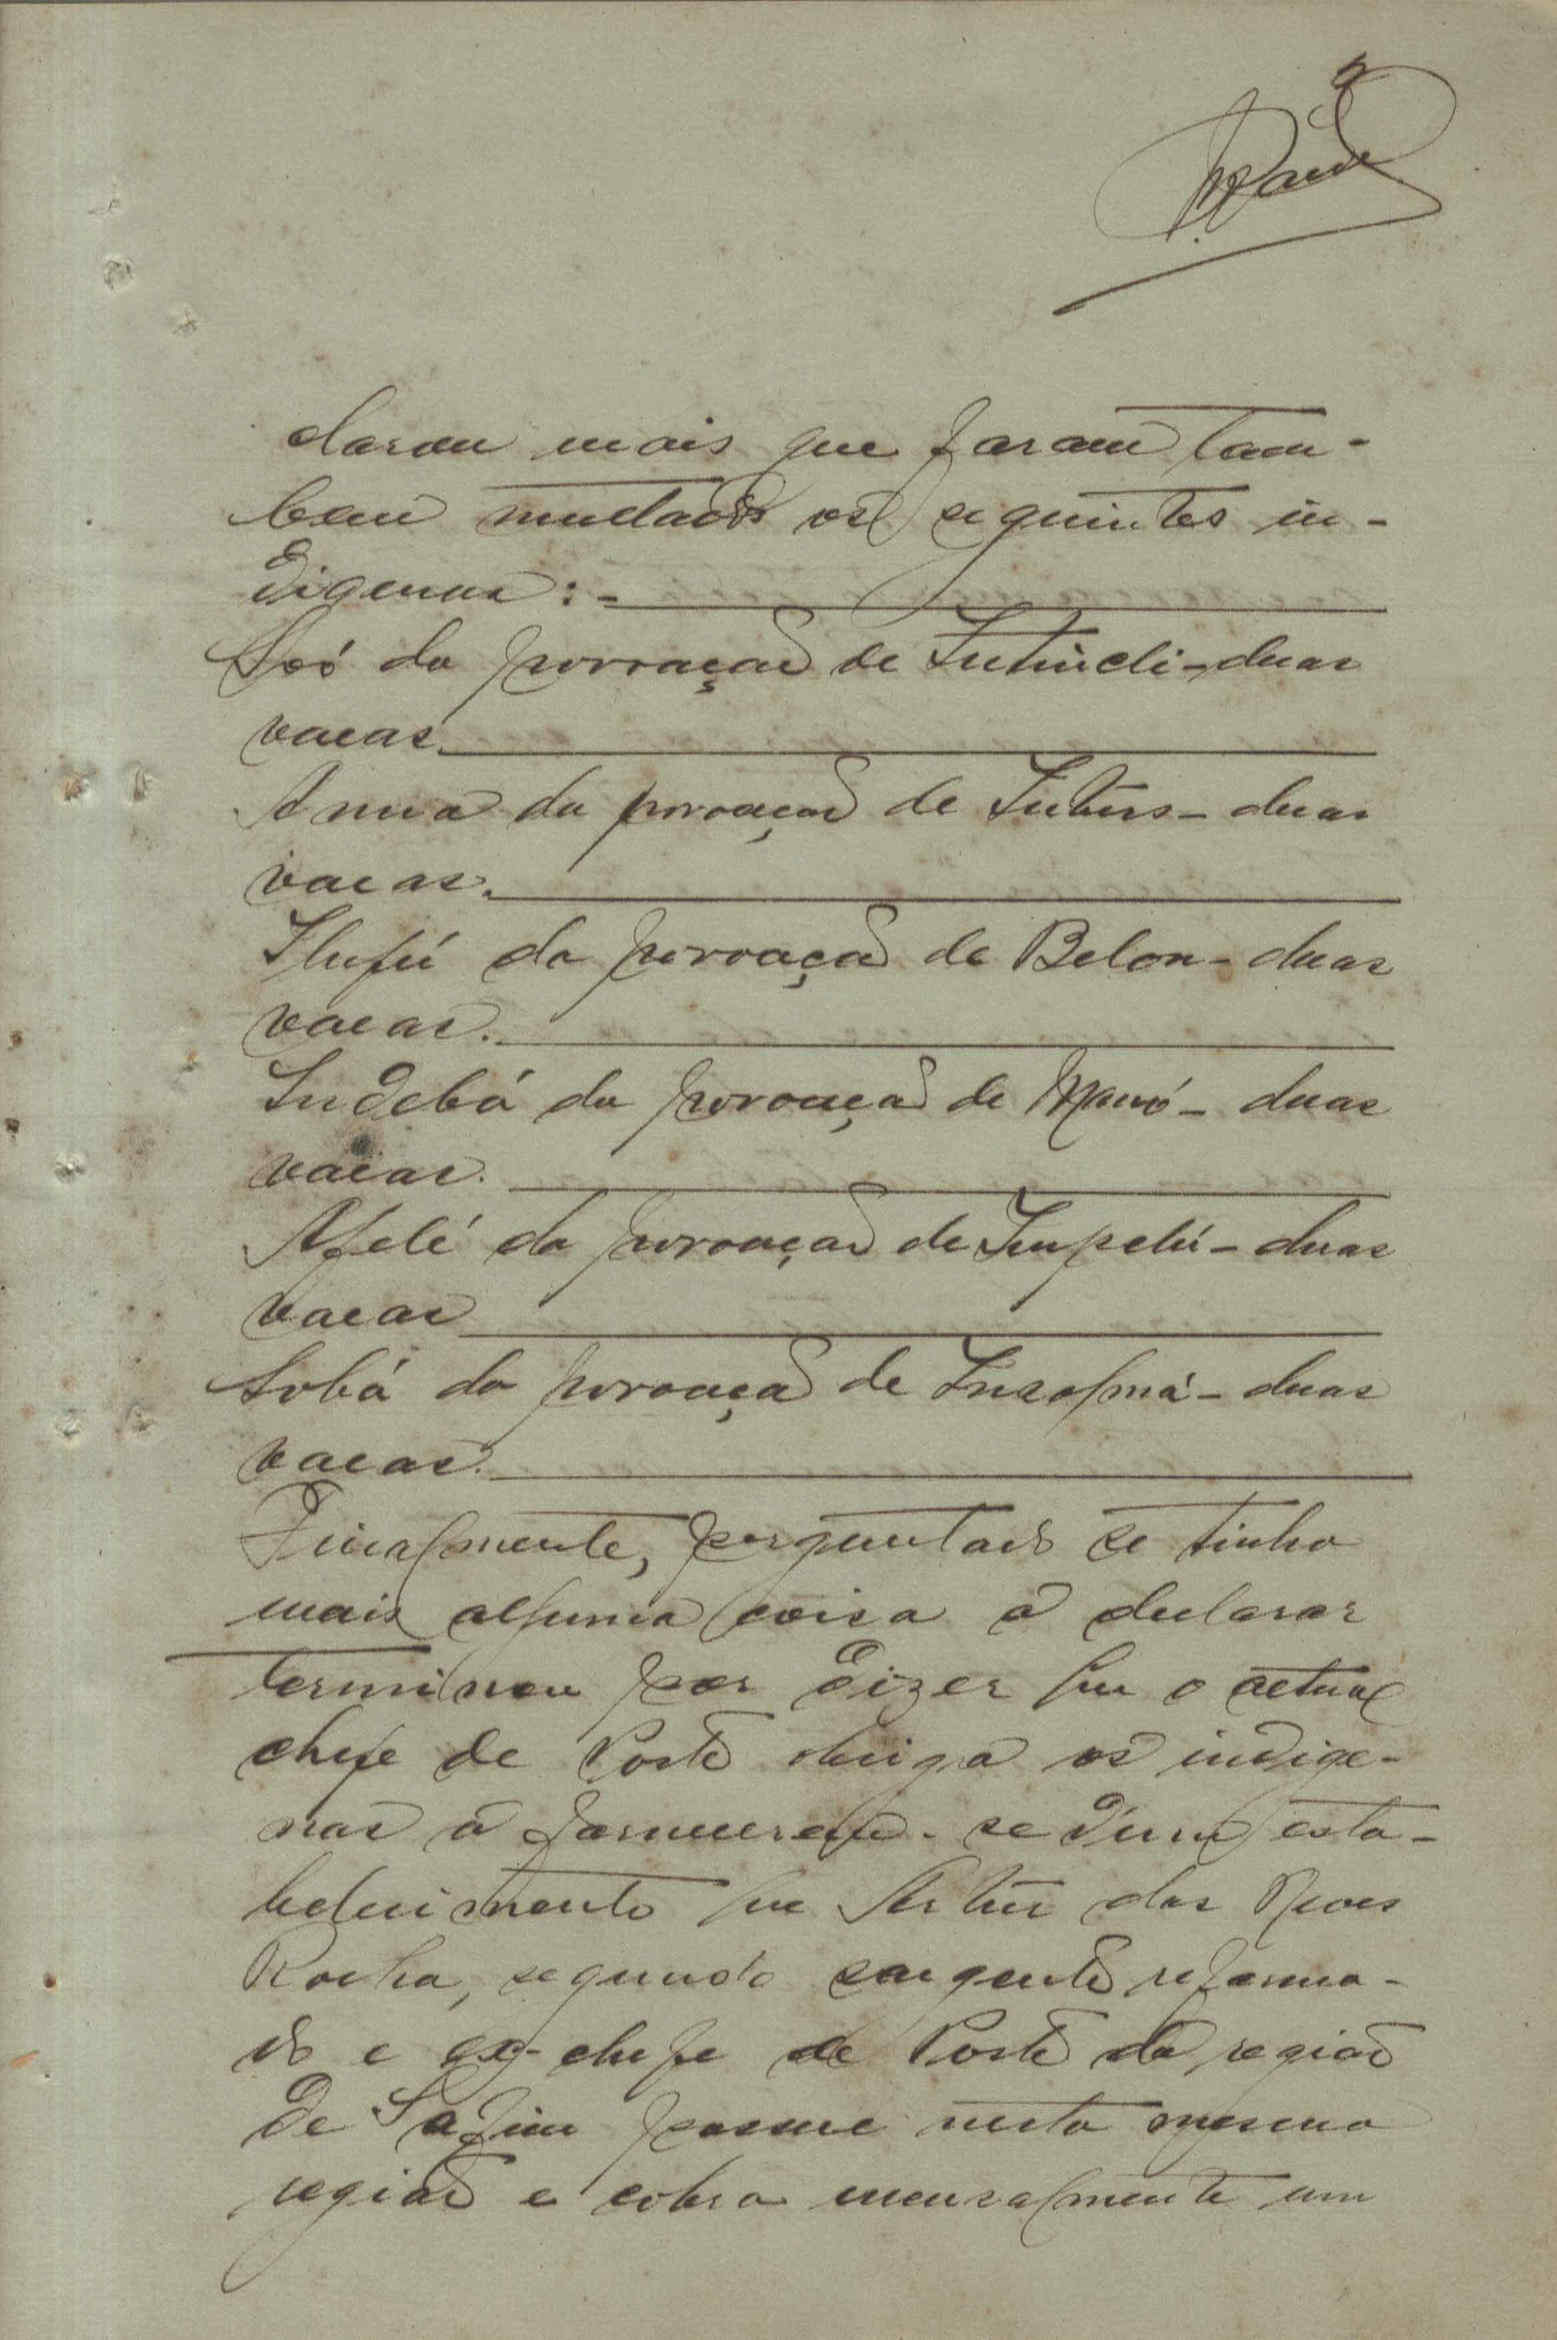 clarou mais que foram tam-
bem multados os seguintes in-
digenas:-
da povoação de duas
vacas.
da povoação de duas
vacas.
da povoação de Belon - duas
vacas.
Indebá da povoação de duas
vacas.
Afelé da povoação de duas
vacas
Sobá da povoação de duas
vacas.
Finalmente, perguntado se tinha
mais alguma coisa a declarar
terminou por dizer que o actual
chefe de Posto obriga os indige-
nas a fornecerem-se d'um esta-
belecimento que Artur das Neves
Rocha, segundo sargento reforma-
do e ex-chefe de Posto da região
de Safim possue nesta mesma
região e cobra mensalmente um